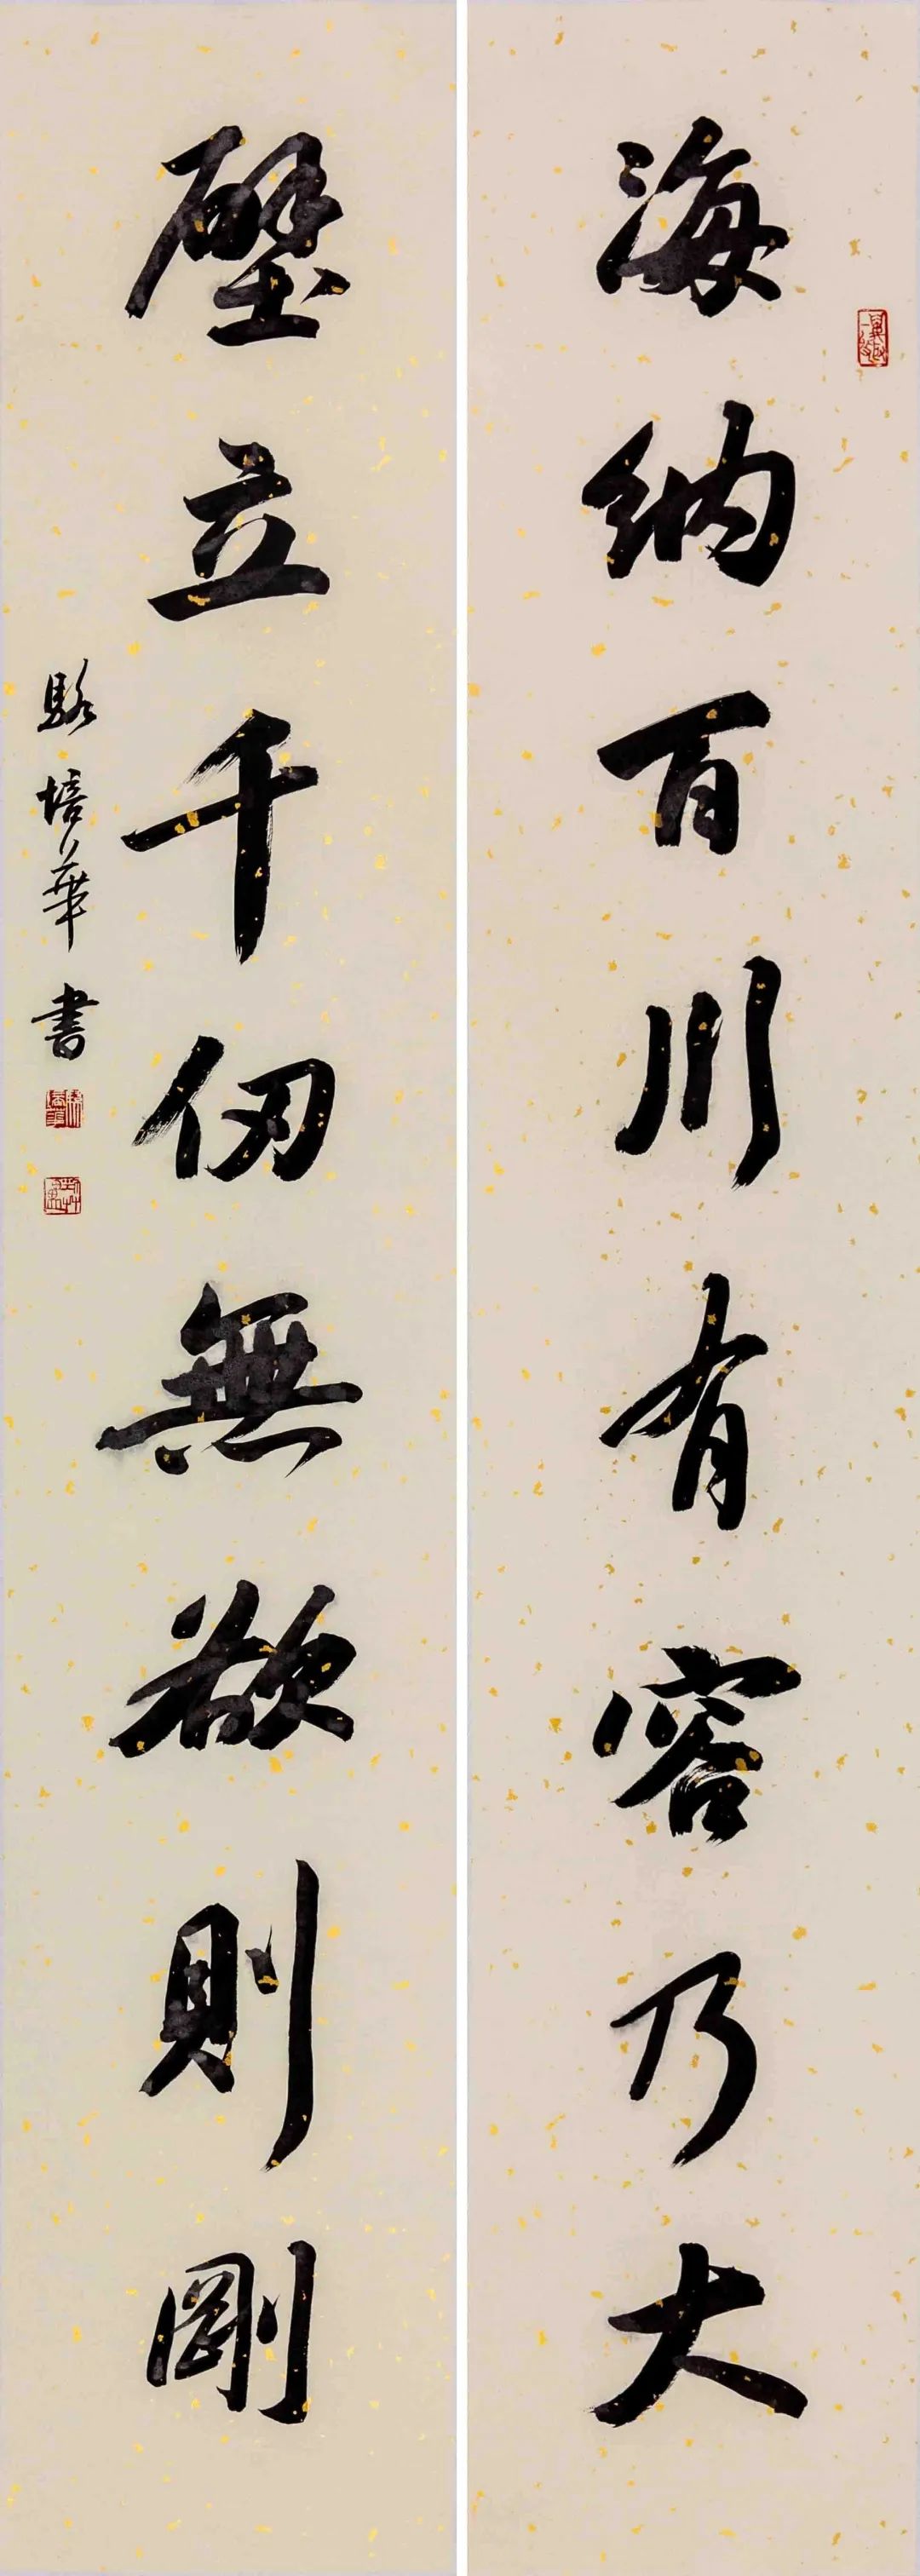 海納百川有容乃大
壁立千仞無欲則剛
駱培華書